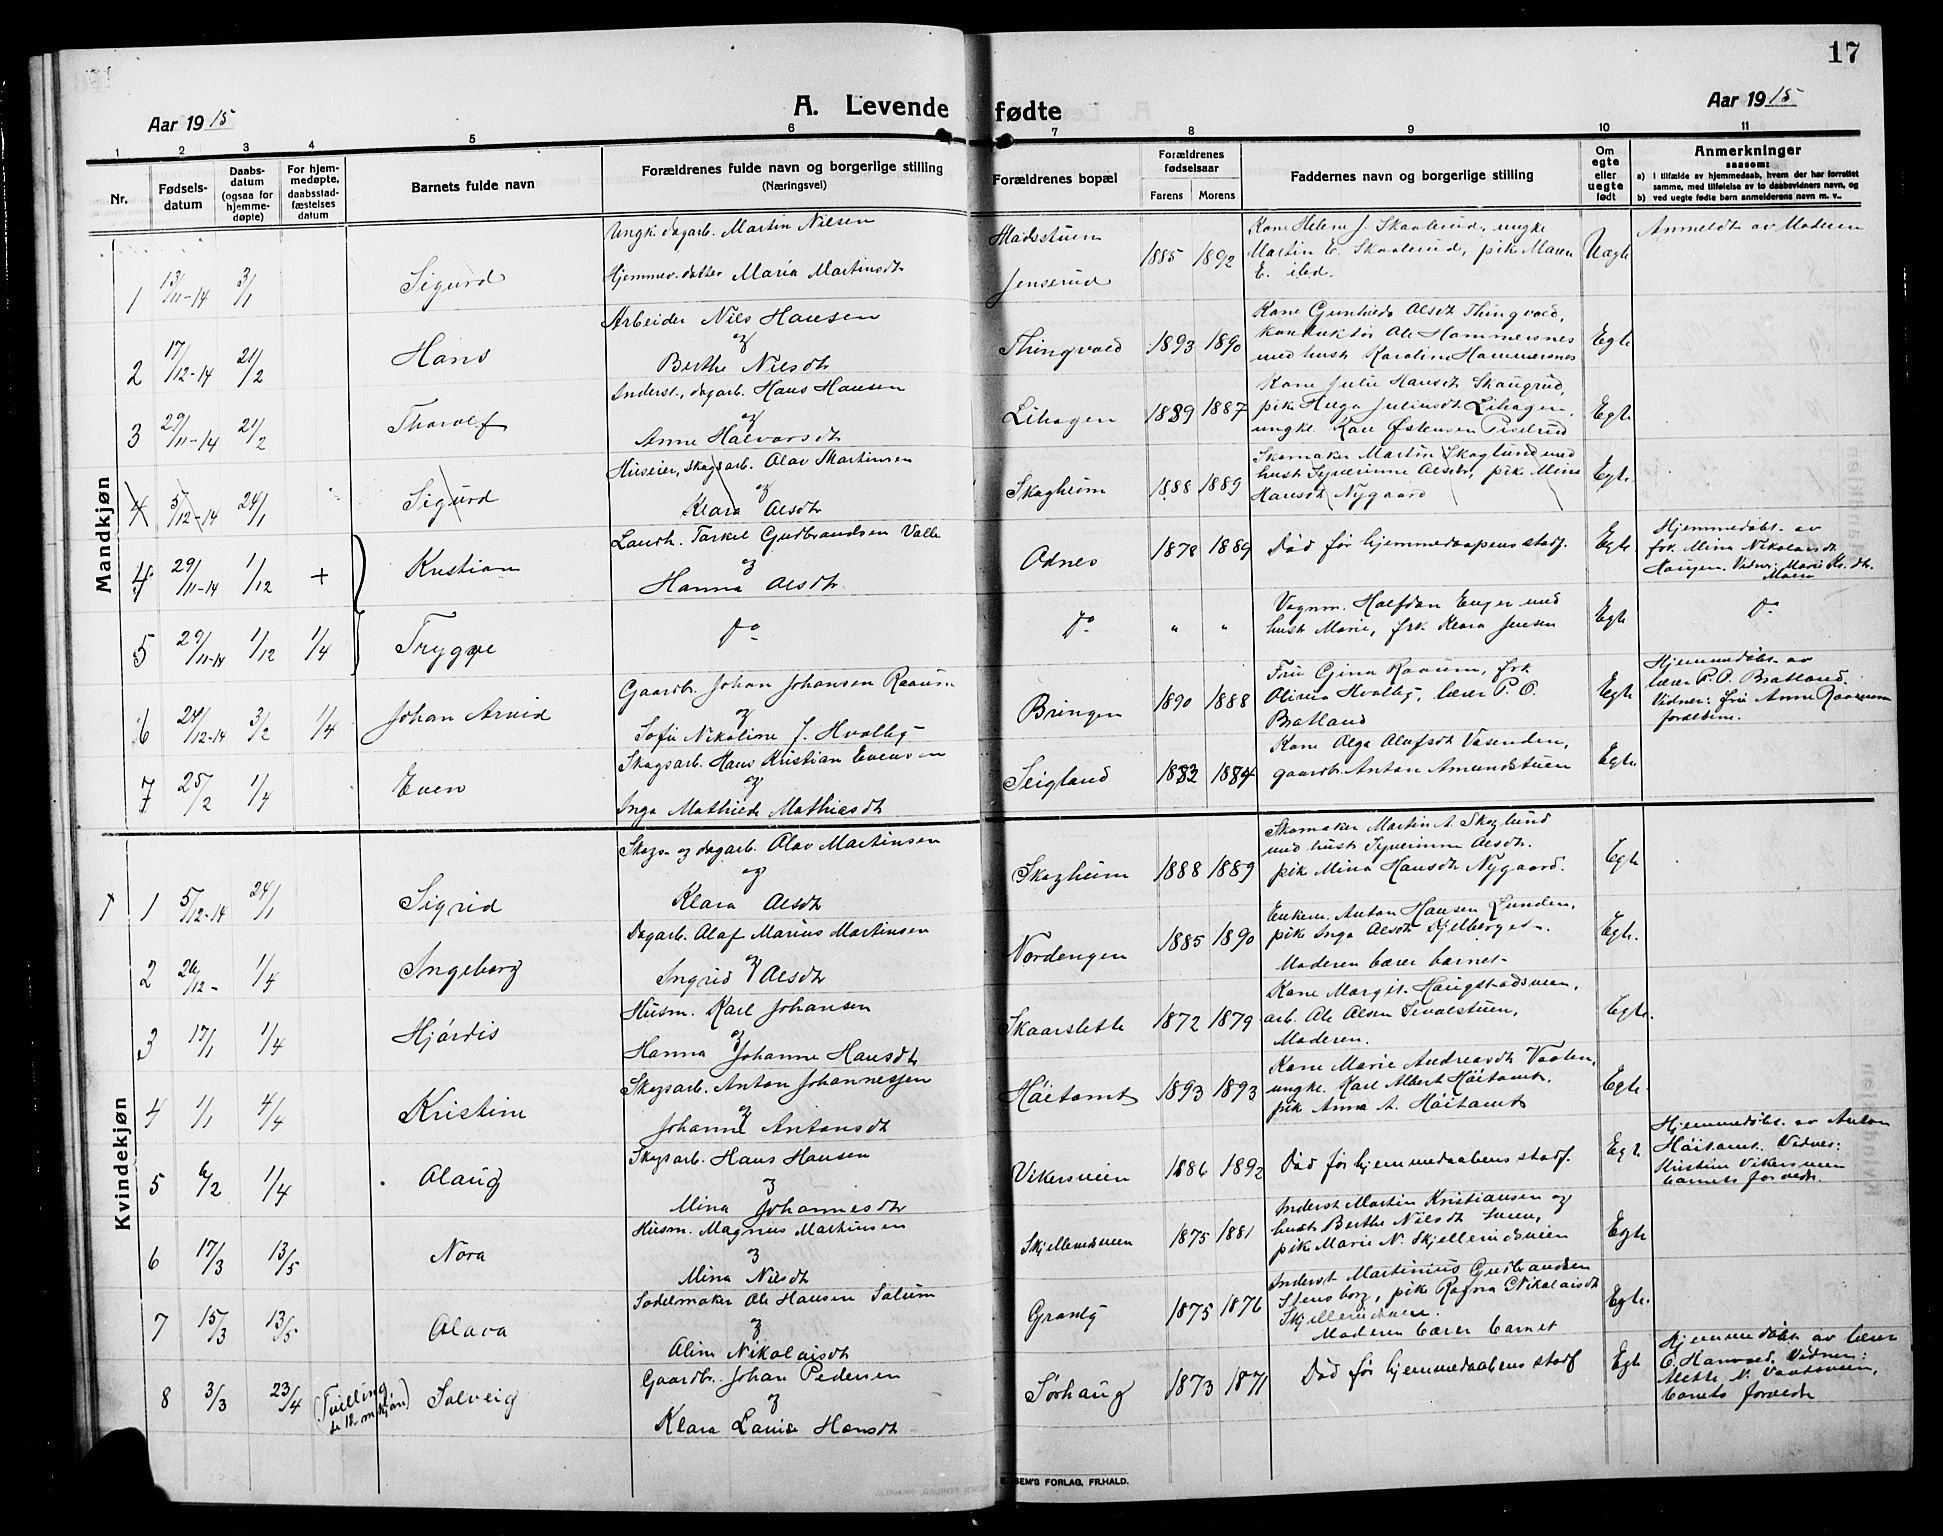 17
Aar 1915
A. Levende fødte
Aar 1915
1 2 3 4 5 6 7 8 9 10 11
Nr.
Fødsels-
datum
Daabs-
datum
(ogsaa for
hjemme-
døpte)
For hjem-
medøpte,
daabsstad-
fæstelses
datum
Barnets fulde navn
Forældrenes fulde navn og borgerlige stilling
(Næringsvei)
Forældrenes bopæl
Forældrenes
fødselsaar
Farens Morens
Faddernes navn og borgerlige stilling
Om
egte
eller
uegte
født
Anmerkninger
saasom:
a) i tilfælde av hjemmedaab, hvem der har forrettet
samme, med tilføielse av to daabsvidners navn, og
b) ved uegte fødte barn anmelderens navn m. v..
Mandkjøn
Ungk. dagarb. Martin Nilsen
Hjemmev. datter Maria Martinsdt
1 13/11-14 3/1 Sigurd
Jenserud
1885 1892
Kone Helene J. Skaalerud, ungke
Martin E. Skaalerud, pike Maren
E. ibd.
Uegte
Anmeldt av Moderen
Arbeider Nils Hansen
og
Berthe Nilsdt
2 17/12-14 21/2 Hans
Thingvold
1893 1890
Kone Gunhild Olsdt Thingvold,
konduktør Ole Hammersnes
med hust. Karoline Hammersnes
Egte
Inderst., dagarb. Hans Hansen
og
Anne Halvorsdt
3 29/11-14 21/2 Thorolf
Lihagen
1889 1887
Kone Julie Hansdt Skaugrud,
pike Helga Juliusdt Lihagen,
ungke. Karl Østensen
Egte
Huseier, skogsarb. Olav Martinsen
og
Klara Olsdt
4 5/12-14 24/1 Sigurd
Skogheim
1888 1889
Skomaker Martin Skoglund med
hust. Syverinne Olsdt, pike Mina
Hansdt Nygaard
Egte
Landh. Tarkel Gudbrandsen Valle
og
Hanna Olsdt
4 29/11-14 1/12 + Kristian
Odnes
1878 1889
Død før hjemmedaapens stadf.
Egte
Hjemmedøbt av
frk. Mina Nikolaisdt
Haugen. Vidner: Marie
5 29/11-14 1/12 1/4 Trygve
do
do
" "
Vognm. Halfdan Enger med
hust. Marie, frk. Klara Jensen
Egte
do
Gaardbr. Johan Johansen Raaum
og
Sofie Nikoline J. Hvalby
6 24/12-14 3/2 1/4 Johan Arvid
Bringen
1890 1888
Fru Gina Raaum, frk.
Olivia Hvalby, lærer P. O.
Bratland
Egte
Hjemmedøbt av
lærer P. O. Bratland.
Vidner: fru Anne Raaum
forældrene.
Skogsarb. Hans Kristian Evensen
og
Inga Mathilde Mathiesdt
7 25/2 1/4 Even
Seigland
1882 1884
Kone Olga Olafsdt Vasenden,
gaardbr. Anton Amundstuen
Egte
Kvindekjøn
Skogs- og dagarb. Olav Martinsen
og
Klara Olsdt
1 5/12-14 24/1 Sigrid
Skogheim
1888 1889
Skomaker Martin A. Skoglund
med hust. Syverinne Olsdt.
pik Mina Hansdt Nygaard.
Egte
Dagarb. Olaf Marius Martinsen
og
Ingrid Olsdt
2 26/12- 1/4 Ingeborg
Nordengen
1885 1890
Enkem. Anton Hansen Lunden,
pike Inga Olsdt Kjelberget.
Moderen bærer barnet.
Egte.
Husm. Karl Johansen
og
Hanna Johanne Hansdt
3 17/1 1/4 Hjørdis
Skaarslette
1872 1879
Kone Margit Haugstadsveen,
arb. Ole Olsen
Moderen.
Egte.
Skogsarb. Anton Johannesjen
og
Johanne Antonsdt
4 1/1 4/4 Kristine
Høitomt
1893 1893
Kone Marie Andreasdt Vaalen,
ungke. Karl Albert Høitomt.
pik Anna A. Høitomt
Egte.
Skogsarb. Hans Hansen
og
Mina Johannesdt
5 6/2 1/4 Olaug
Vikersveien
1886 1892
Død før hjemmedaabens stadf.
Egte
Hjemmedøbt av Anton
Høitomt. Vidner:
Kristine Vikersveen
barnets forældr.
Husm. Magnus Martinsen
og
Mina Nilsdt
6 17/3 13/5 Nora
Skjellerudsveen
1875 1881
Inderst Martin Kristiansen og
hust Berthe Nilsdt
pike Marie N. Skjellerudsveien
Egte
Sadelmaker Ole Hansen Solum
og
Aline Nikolaisdt
7 15/3 13/5 Olava
Granly
1875 1876
Inderst Martinius Gudbrandsen
Stensborg, pike Ragna Nikolaisdt
Moderen bærer barnet
Egte.
Gaardbr. Johan Pedersen
og
Klara Louise Hansdt
8 3/3 23/4 (Tvilling
12 mkjøn) Solveig
Sørhaug
1873 1871
Død før hjemmedaabens stadf
Egte
Hjemmedøbt av lærer
Vidner:
Mette N.
barnets forældr
SEM'S FORLAG, FR.HALD.